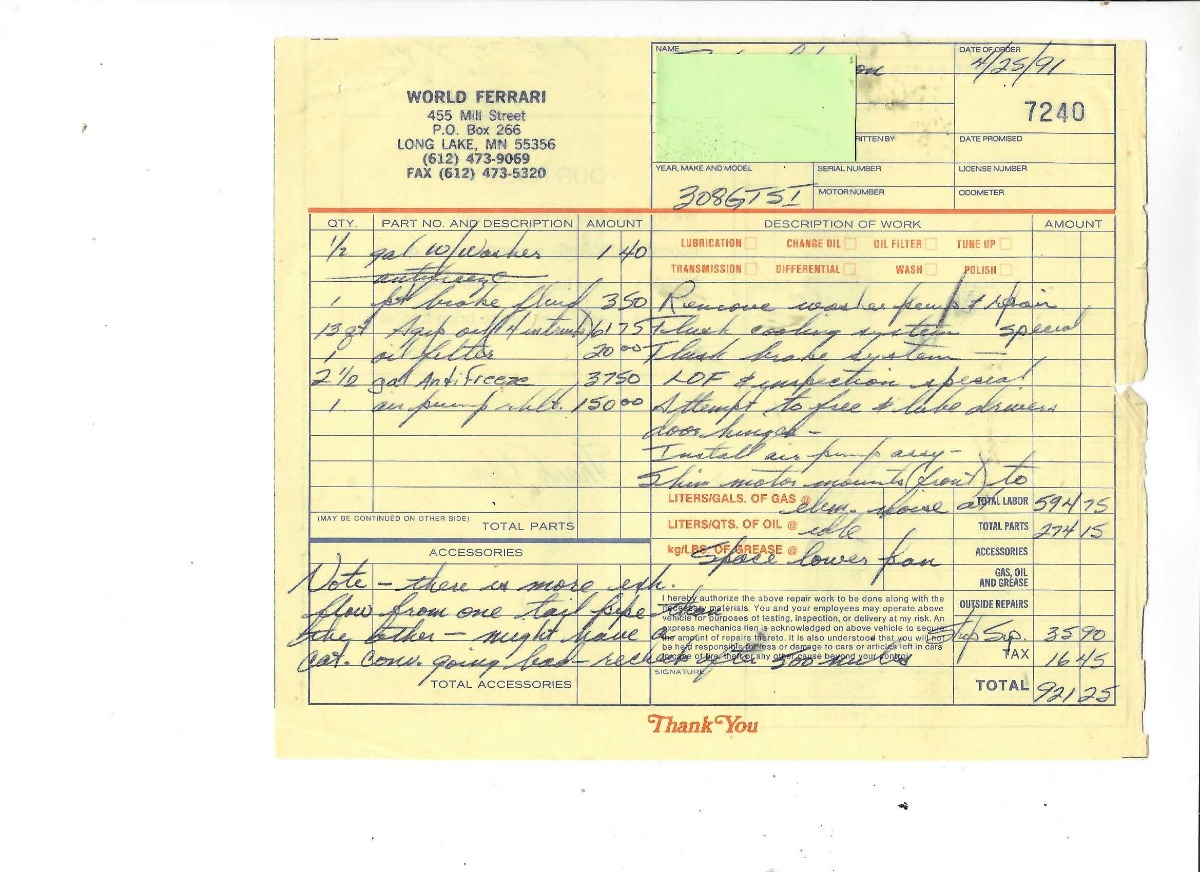 WORLD FERRARI
455 Mill Street
P.O. Box 266
LONG LAKE, MN 55356
(612) 473-9069
FAX (612) 473-5320
NAME
DATE OF ORDER
4/25/91
7240
DATE PROMISED
YEAR, MAKE AND MODEL
308GTSI
SERIAL NUMBER
LICENSE NUMBER
MOTOR NUMBER
ODOMETER
QTY. PART NO. AND DESCRIPTION AMOUNT
1/2 gal w/washer 1 40
antifreeze
1 pt brake fluid 3 50
13 qt Agip oil 61 75
1 oil filter 20 00
2 1/2 gal Antifreeze 37 50
1 air pump rblt. 150 00
(MAY BE CONTINUED ON OTHER SIDE) TOTAL PARTS
DESCRIPTION OF WORK AMOUNT
LUBRICATION CHANGE OIL OIL FILTER TUNE UP
TRANSMISSION DIFFERENTIAL WASH POLISH
Remove washer pump & repair
Flush cooling system special
Flush brake system —
LOF & inspection special
Attempt to free & lube drivers
door hinges –
Install air pump assy –
Shim motor mounts (front) to
elim. noise at
idle
Space lower fan
LITERS/GALS. OF GAS @
LITERS/QTS. OF OIL @
kg/LBS. OF GREASE @
TOTAL LABOR 594 75
TOTAL PARTS 274 15
ACCESSORIES
GAS, OIL AND GREASE
OUTSIDE REPAIRS
Sup. 35 90
TAX 16 45
TOTAL 921 25
ACCESSORIES
Note – there is more exh.
flow from one tail pipe than
the other – might have a
cat. conv. going bad – recheck after 500 miles
TOTAL ACCESSORIES
I hereby authorize the above repair work to be done along with the
necessary materials. You and your employees may operate above
vehicle for purposes of testing, inspection, or delivery at my risk. An
express mechanics lien is acknowledged on above vehicle to secure
the amount of repairs thereto. It is also understood that you will not
be held responsible for loss or damage to cars or articles left in cars
in case of fire, theft or any other cause beyond your control.
SIGNATURE
Thank You